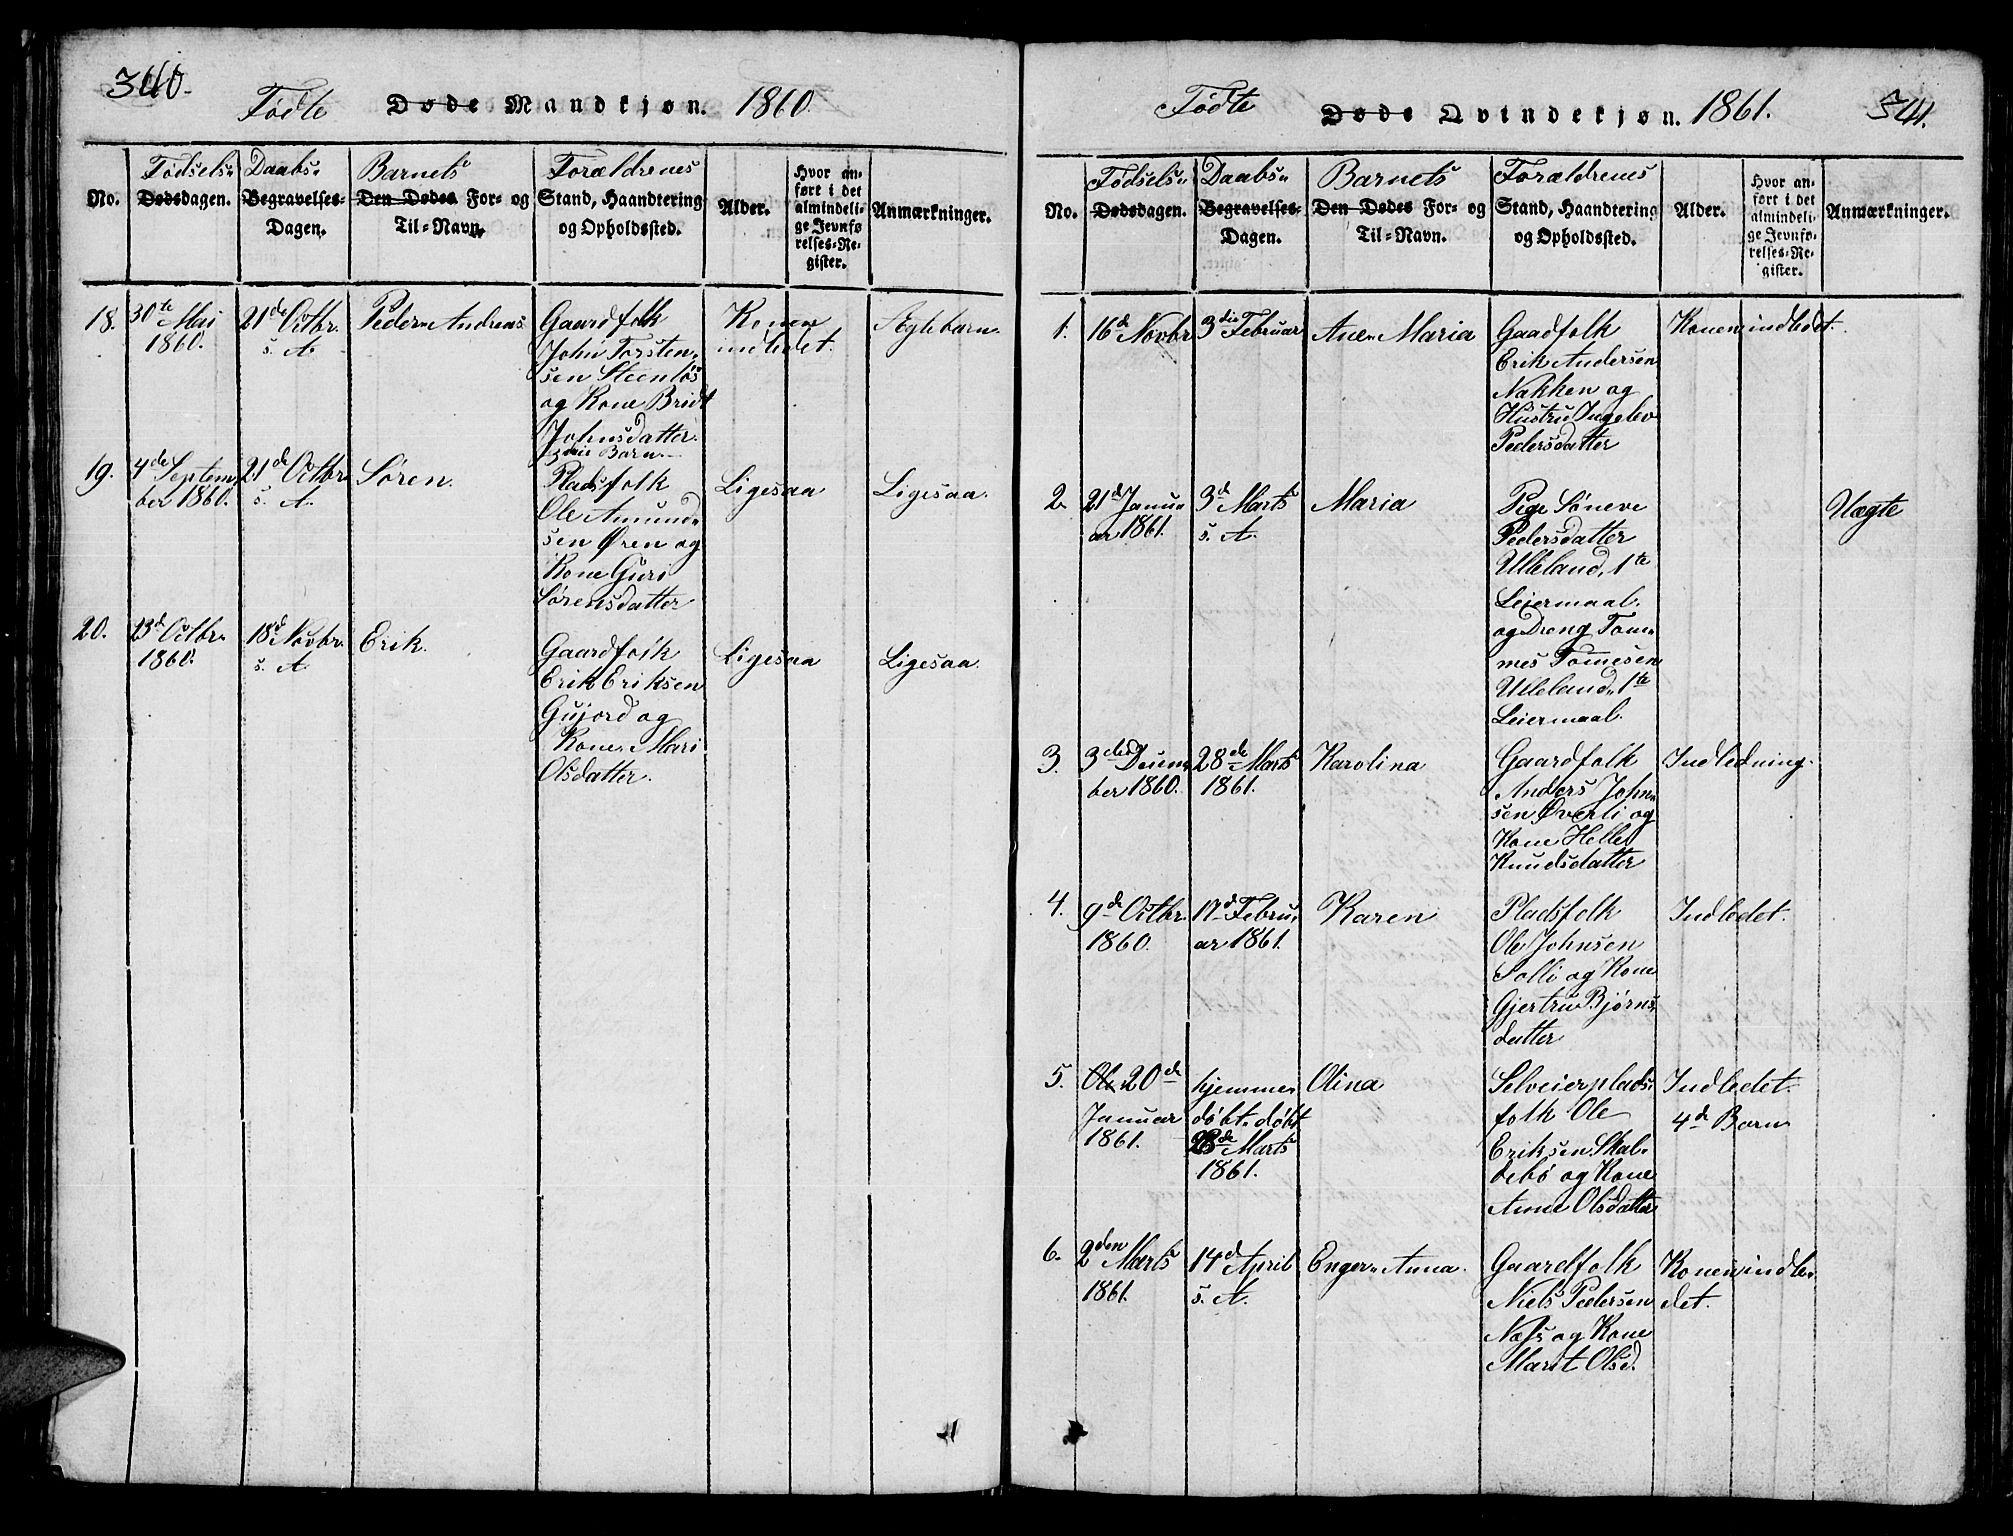 340.
Fødte Døde Mandkjøn. 1860.
No.
Fødselsdagen. Dødsdagen.
Daabs Begravelses-Dagen.
Barnets Den Dødes For- og Til-Navn.
Forældrenes Stand, Haandtering og Opholdssted.
Alder.
Hvor anført i det almindelige Jevnførelses-Register.
Anmærkninger.
18. 30te Mai 21de Octbr. Peder Andreas Gaardfolk Konen Ægtebarn
1860. s. A. John Torsten- indledet.
sen Steenløs
og Kone Bridt
Johnsdatter.
3die Barn.
19. 4de Septem 21de Octbr. Søren. Pladsfolk Ligesaa Ligesaa.
ber 1860. s. A. Ole Amund-
sen Øren og
Kone Guri
Sørensdatter
20. 23d Octbr. 18d Novbr. Erik. Gaardfolk Ligesaa Ligesaa.
1860. s. A. Erik Eriksen
Gujord og
Kone Mari
Olsdatter.
341.
Fødte Døde Qvindekjøn. 1861.
No.
Fødsels Dødsdagen.
Daabs Begravelses-Dagen.
Barnets Den Dødes For- og Til-Navn.
Forældrenes Stand, Haandtering og Opholdssted.
Alder.
Hvor anført i det almindelige Jevnførelses-Register.
Anmærkninger.
1. 16d Novbr 3die Februar Ane Maria Gaadfolk Konen indledt.
Erik Andersen
Nakken og
Hustru Ingelev
Pedersdatter
2. 21d Janu- 3d Marts Maria Pige Søneve Uægte
ar 1861. s. A. Pedersdatter
Ulleland, 1te
Leiermaal.
og Dreng Tom-
mes Tomesen
Ulleland, 1te
Leiermaal.
3. 3den Decem- 28de Marts Karolina Gaardfolk Indledning.
ber 1860. 1861. Anders John-
sen Øverli og
Kone Helle
Knudsdatter
4. 9de Octbr. 17d Febru- Karen Pladsfolk Indledet.
1860. ar 1861. Ole Johnsen
Solli og Kone
Gjertru Bjørns-
datter
5. Ol 20de hjemme- Olina Selveierplads- Indledet.
Januar døbt. døbt folk Ole 4d Barn
1861. 28de Marts Eriksen Skal-
1861. lebø og Kone
Anne Olsdatter
6. 2den Marts 14d April Enger Anna. Gaardfolk Konen indle-
1861. s. A. Niels Pedersen det.
Næss og Kone
Marit Olsd.